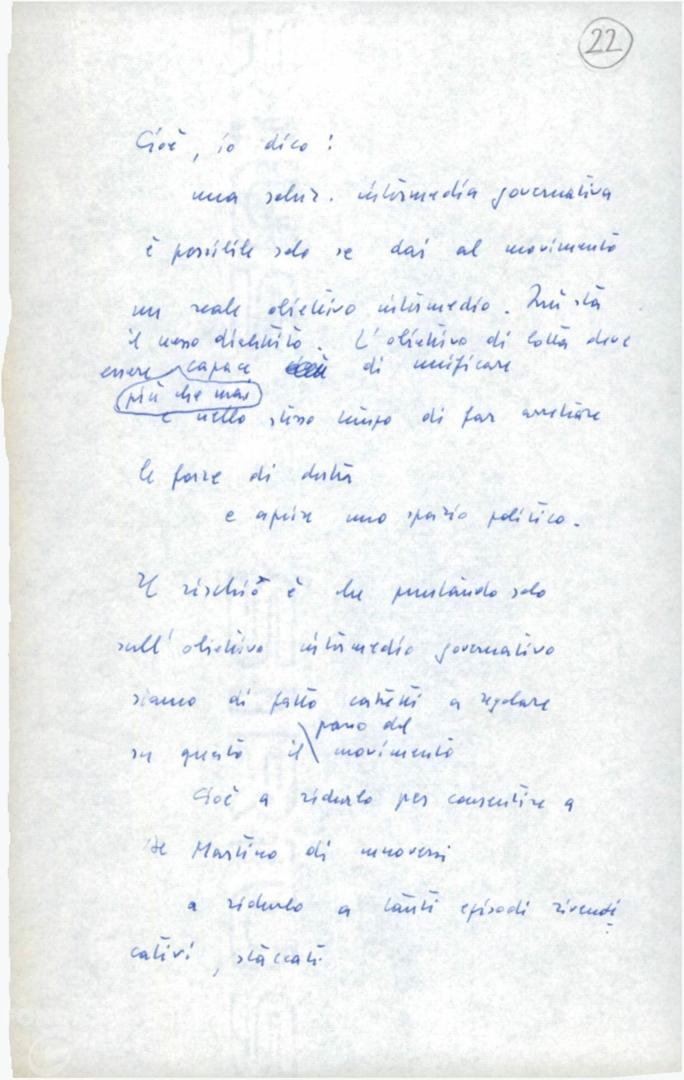 22
Cioè, io dico:
una soluz. intermedia governativa
è possibile solo se dai al movimento
un reale obiettivo intermedio. Qui sta
il nesso dialettico. L'obiettivo di lotta deve
essere capace di unificare
più che mai
e nello stesso tempo di far arretrare
le forze di destra
e aprire uno spazio politico.
Il rischio è che puntando solo
sull'obiettivo intermedio governativo
siamo di fatto costretti a regolare
passo del
su questo il movimento
Cioè a ridurlo per consentire a
De Martino di muoversi
a ridurlo a tanti episodi rivendi
cativi, staccati